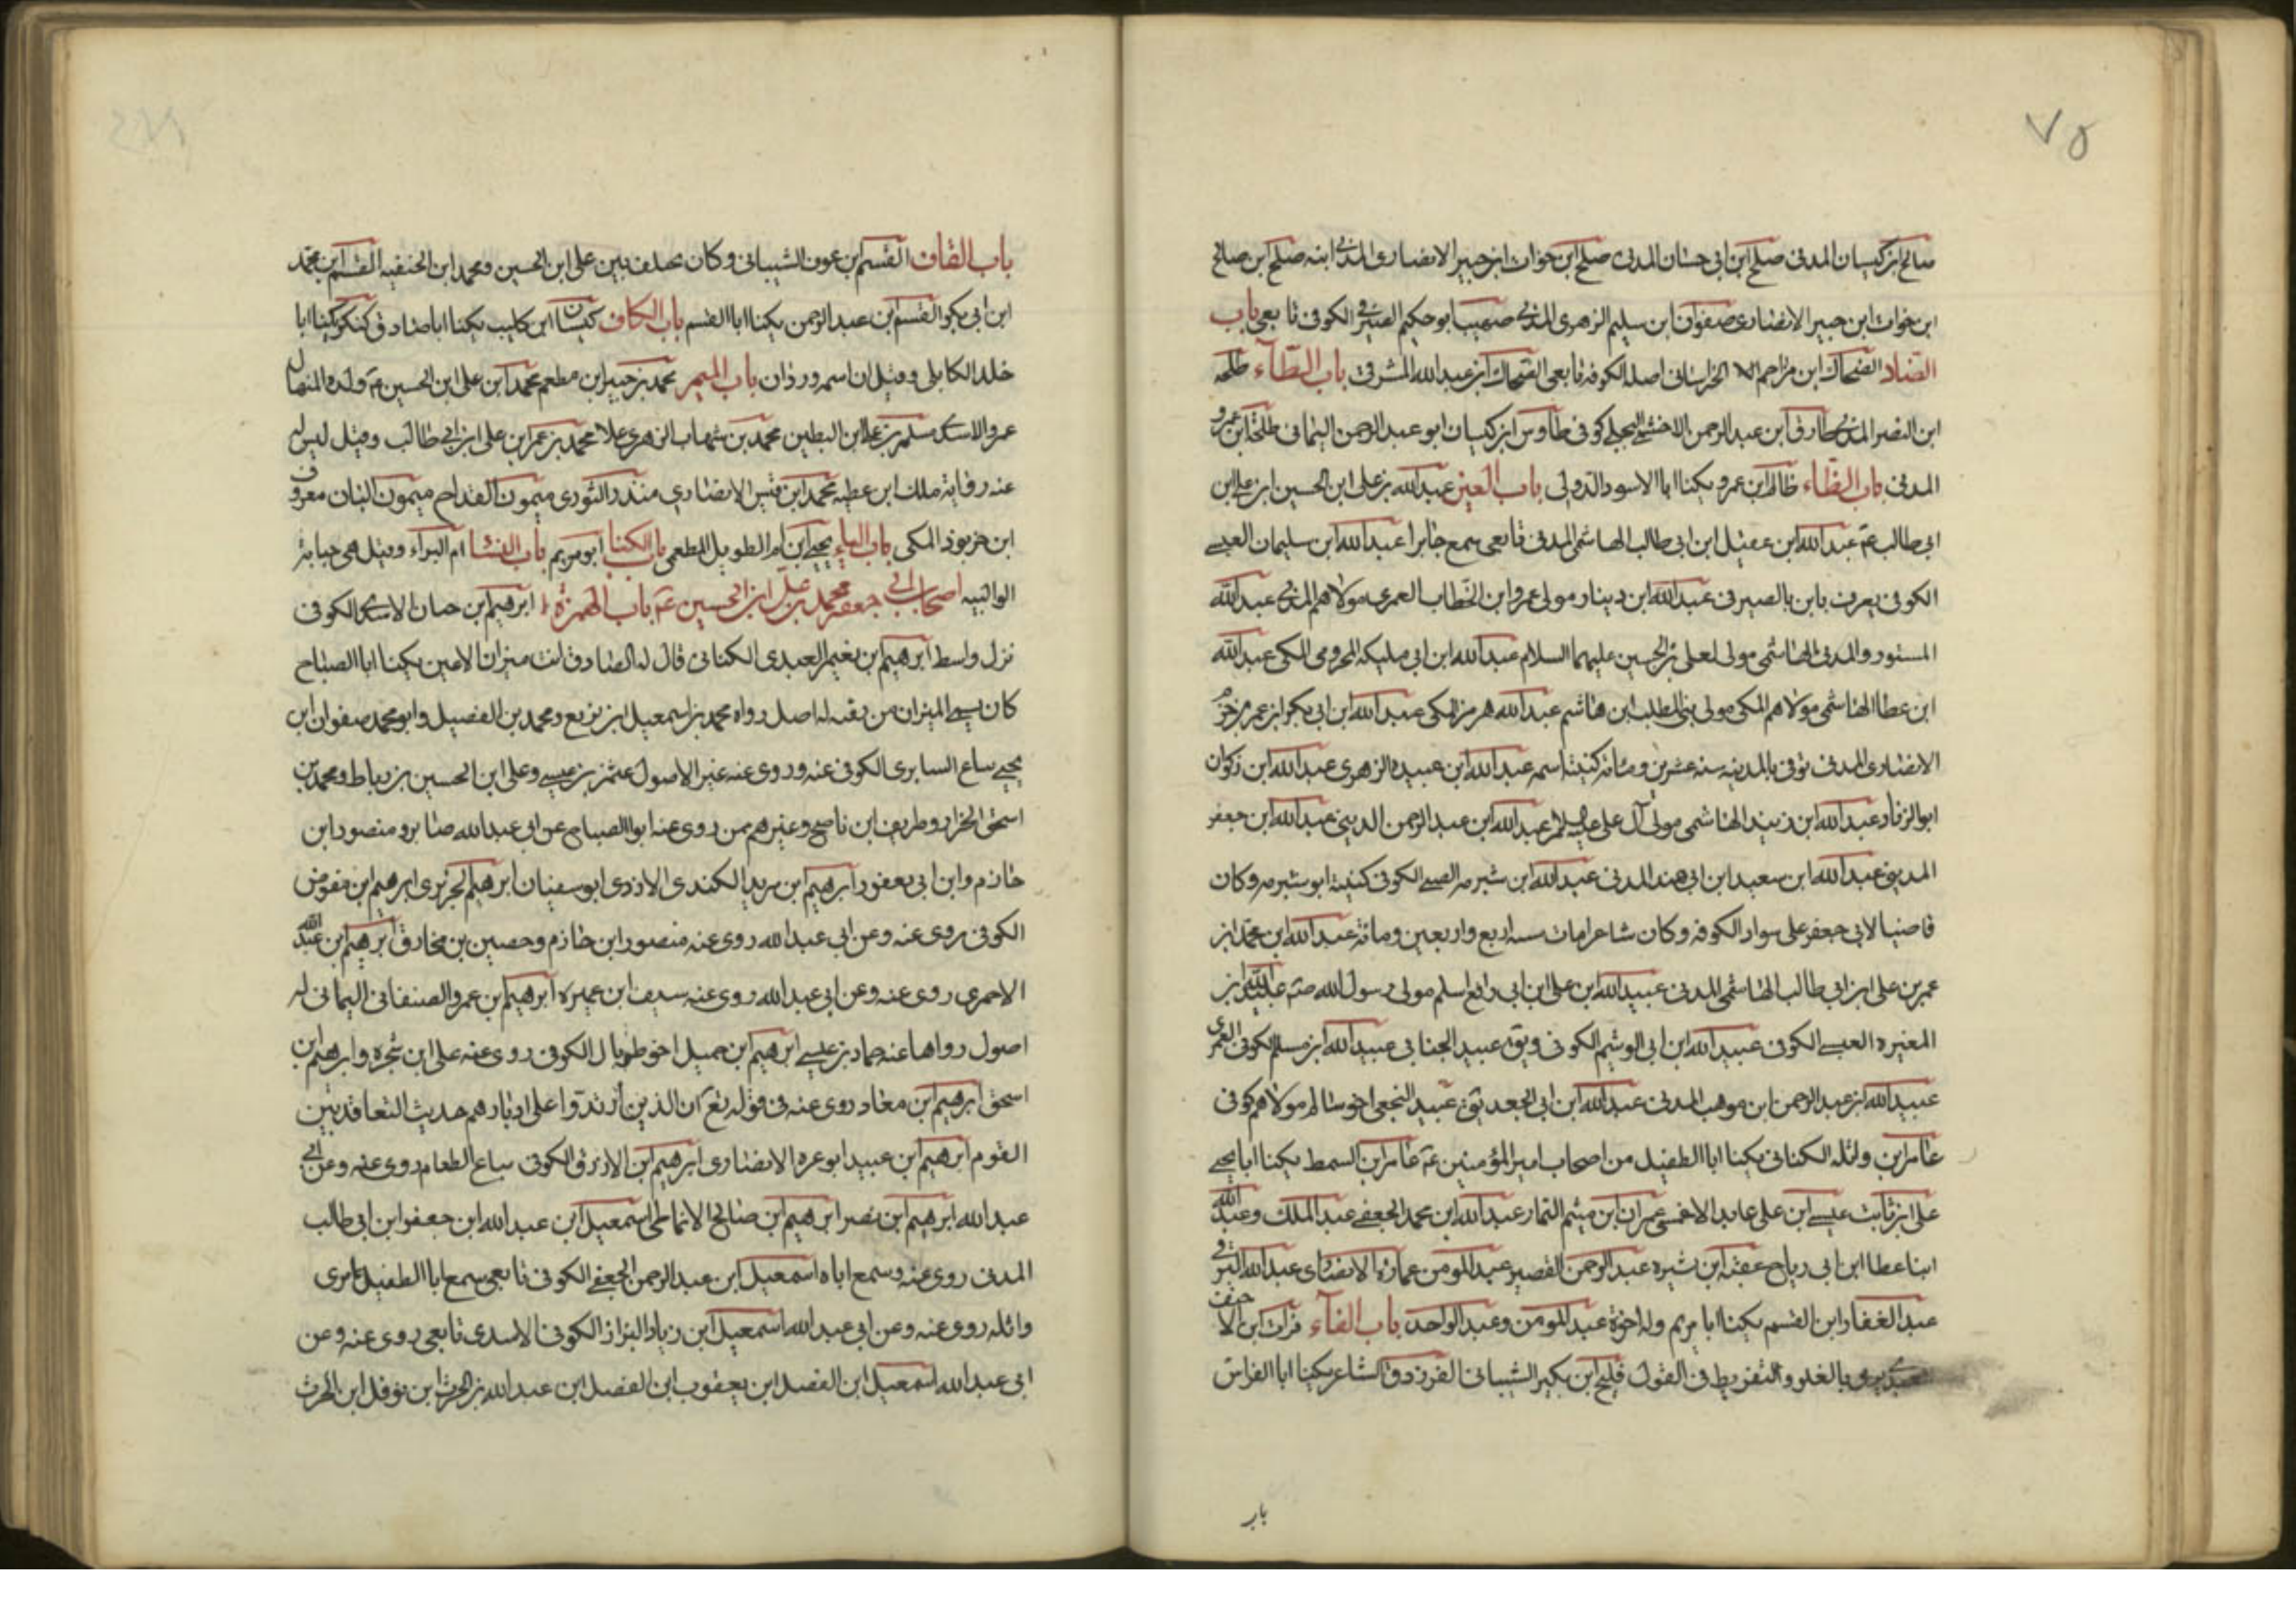 ٧٥
صالح ابن كيسان المدنى صلح ابن ابى حسان المدنى صلح ابن خوات ابن جبير الانصارى المدنى ابنه صلح ابن صالح
ابن خوات ابن جبير الانصارى صفوان ابن سليم الزهرى المدنى صهيب ابو حكيم الصيرفى الكوفى تابعى باب
الضاد الضحاك ابن مزاحم الخراسانى اصله الكوفه تابعى الضحاك ابن عبدالله المشرقى باب الطآء طلحه
ابن النضر المدنى طارق ابن عبد الرحمن الاحمسى البجلى كوفى طاوس ابن كيسان ابو عبد الرحمن اليمانى طلحة ابن عمرو
المدنى باب الظاء ظالم ابن عمرو يكنا ابا الاسود الدولى باب العين عبدالله بن على ابن الحسين ابن على ابن
ابى طالب عم عبدالله ابن عقيل ابن ابى طالب الهاشمى المدنى تابعى سمع جابرا عبدالله ابن سليمان العبسى
الكوفى يعرف بابن بالصيرفى عبدالله ابن دينار مولى عمر وابن الخطاب العمرى مولاهم المدنى عبدالله
المستورد المدنى الهاشمى مولى لعلى بن الحسين عليهما السلام عبدالله ابن ابى مليكه المخرومى المكى عبدالله
ابن عطا الهاشمى مولاهم المكى مولى بنى المطلب ابن هاشم عبدالله هرمز المكى عبدالله ابن ابى بكر ابن عمر بن حزم
الانصارى المدنى توفى بالمدينه سنه عشرين ومائه كنيته اسمه عبدالله ابن عبيده الزهرى عبدالله ابن ذكوان
ابو الزناد عبدالله ابن زبيد الهاشمى مولى آل على عبدالله ابن عبد الرحمن المدينى عبدالله ابن جعفر
المدينى عبدالله ابن سعيد ابن ابى هند المدنى عبدالله ابن شبرمه الضبى الكوفى كنيته ابو شبرمه وكان
قاضيا لابى جعفر على سواد الكوفه وكان شاعرا مات سنه اربع واربعين ومائه عبدالله ابن محمد ابن
عمر بن على ابن ابى طالب الهاشمى المدنى عبيدالله ابن على ابن ابى رافع اسلم مولى رسول الله صم عبدالله ابن
المغيره العبسى الكوفى عبيدالله ابن ابى الوشيم الكوفى ويق عبيد الجنابى عبيدالله ابن مسلم الكوفى العمرى
عبيدالله ابن عبد الرحمن ابن موهب المدنى عبدالله ابن ابى الجعد يق عبيد النجعى اخو سالم مولاهم كوفى
عامر ابن واثله الكنانى يكنا ابا الطفيل من اصحاب امير المؤمنين عم عامر ابن السمط يكنا ابا يحيى
على ابن ثابت عيسى ابن على عابد الاحمسى عمران ابن ميثم التمار عبدالله ابن محمد الجعفى عبد الملك وعبدالله
ابنا عطا ابن ابى رباح عقبه ابن شيره عبد الرحمن القصير عبد المومن عمارة الانصارى عبدالله البرقى
عبد الغفار ابن القسم يكنا ابا مريم وله اخوة عبد المومن وعبد الواحد باب الفآء فرات ابن الاحنف
يرمى بالغلو والتفريط فى القول فليح ابن بكير الشيبانى الفرزدق الشاعر يكنا ابا الفراس
باب
باب القاف القسم ابن عوف الشيبانى وكان يختلف بين على ابن الحسين ومحمد ابن الحنفيه القسم ابن محمد
ابن ابى بكر القسم ابن عبد الرحمن يكنا ابا القسم باب الكاف كيسان ابن كليب يكنا ابا صادق كنكر يكنا ابا
خلد الكابلى وقيل ان اسمه وردان باب الميم محمد بن جبير ابن مطعم محمد ابن على ابن الحسين عم ولده المنهال
عمرو الاسدى مسلم بن على ابن البطين محمد بن شهاب الزهرى محمد بن عمر ابن على ابن ابى طالب وقيل ليس له
عنه رواية ملك ابن عطيه محمد ابن قيس الانصارى منذر الثورى ميمون القداح ميمون البان معروف
ابن خربوذ المكى باب الياء يحيى ابن ام الطويل المطعمى باب الكنا ابو مريم باب النسا ام البراء وقيل هى حبابة
الوالبيه اصحاب ابى جعفر محمد بن على ابن الحسين عم باب الهمزة ابرهيم ابن حنان الاسدى الكوفى
نزل واسط ابرهيم ابن نعيم العبدى الكنانى قال له الصادق انت ميزان لا عين يكنا ابا الصباح
كان يسمى الميزان من ثقته له اصل رواه محمد بن اسمعيل ابن بزيع ومحمد بن الفضيل وابو محمد صفوان ابن
يحيى بياع السابرى الكوفى عنه وروى عنه غير الاصول عثمن بن عيسى وعلى ابن الحسين بن رباط ومحمد بن
اسحق الخزاز وطريف ابن ناصح وغيرهم ممن روى عنه ابو الصباح عن ابى عبدالله صابر ومنصور ابن
حازم وابن ابى يعفور ابرهيم ابن مرثد الكندى الازدى ابو سفيان ابرهيم الجزيرى ابرهيم ابن مفوض
الكوفى روى عنه وعن ابى عبدالله روى عنه منصور ابن حازم وحصين بن مخارق ابرهيم ابن عبدالله
الاحمرى روى عنه وعن ابى عبدالله روى عنه سيف ابن عميره ابرهيم ابن عمر والصنعانى اليمانى له
اصول رواها عنه حماد بن عيسى ابرهيم ابن جميل اخو طربال الكوفى روى عنه على ابن شجره وابرهيم ابن
اسحق ابرهيم ابن معاد روى عنه فى قوله تع ان الذين ارتدوا على ادبارهم حديث التعاقد بين
القوم ابرهيم ابن عبيد ابو عره الانصارى ابرهيم ابن الازرق الكوفى بياع الطعام روى عنه وعن ابى
عبدالله ابرهيم ابن نصر ابرهيم ابن صالح الانماطى اسمعيل ابن عبدالله ابن جعفر ابن ابى طالب
المدنى روى عنه وسمع اباه اسمعيل ابن عبد الرحمن الجعفى الكوفى تابعى سمع ابا الطفيل عامرى
واثله روى عنه وعن ابى عبدالله اسمعيل ابن زياد البزاز الكوفى الاسدى تابعى روى عنه وعن
ابى عبدالله اسمعيل ابن الفضل ابن يعقوب ابن الفضل ابن عبدالله بن الحرث ابن نوفل ابن الحرث